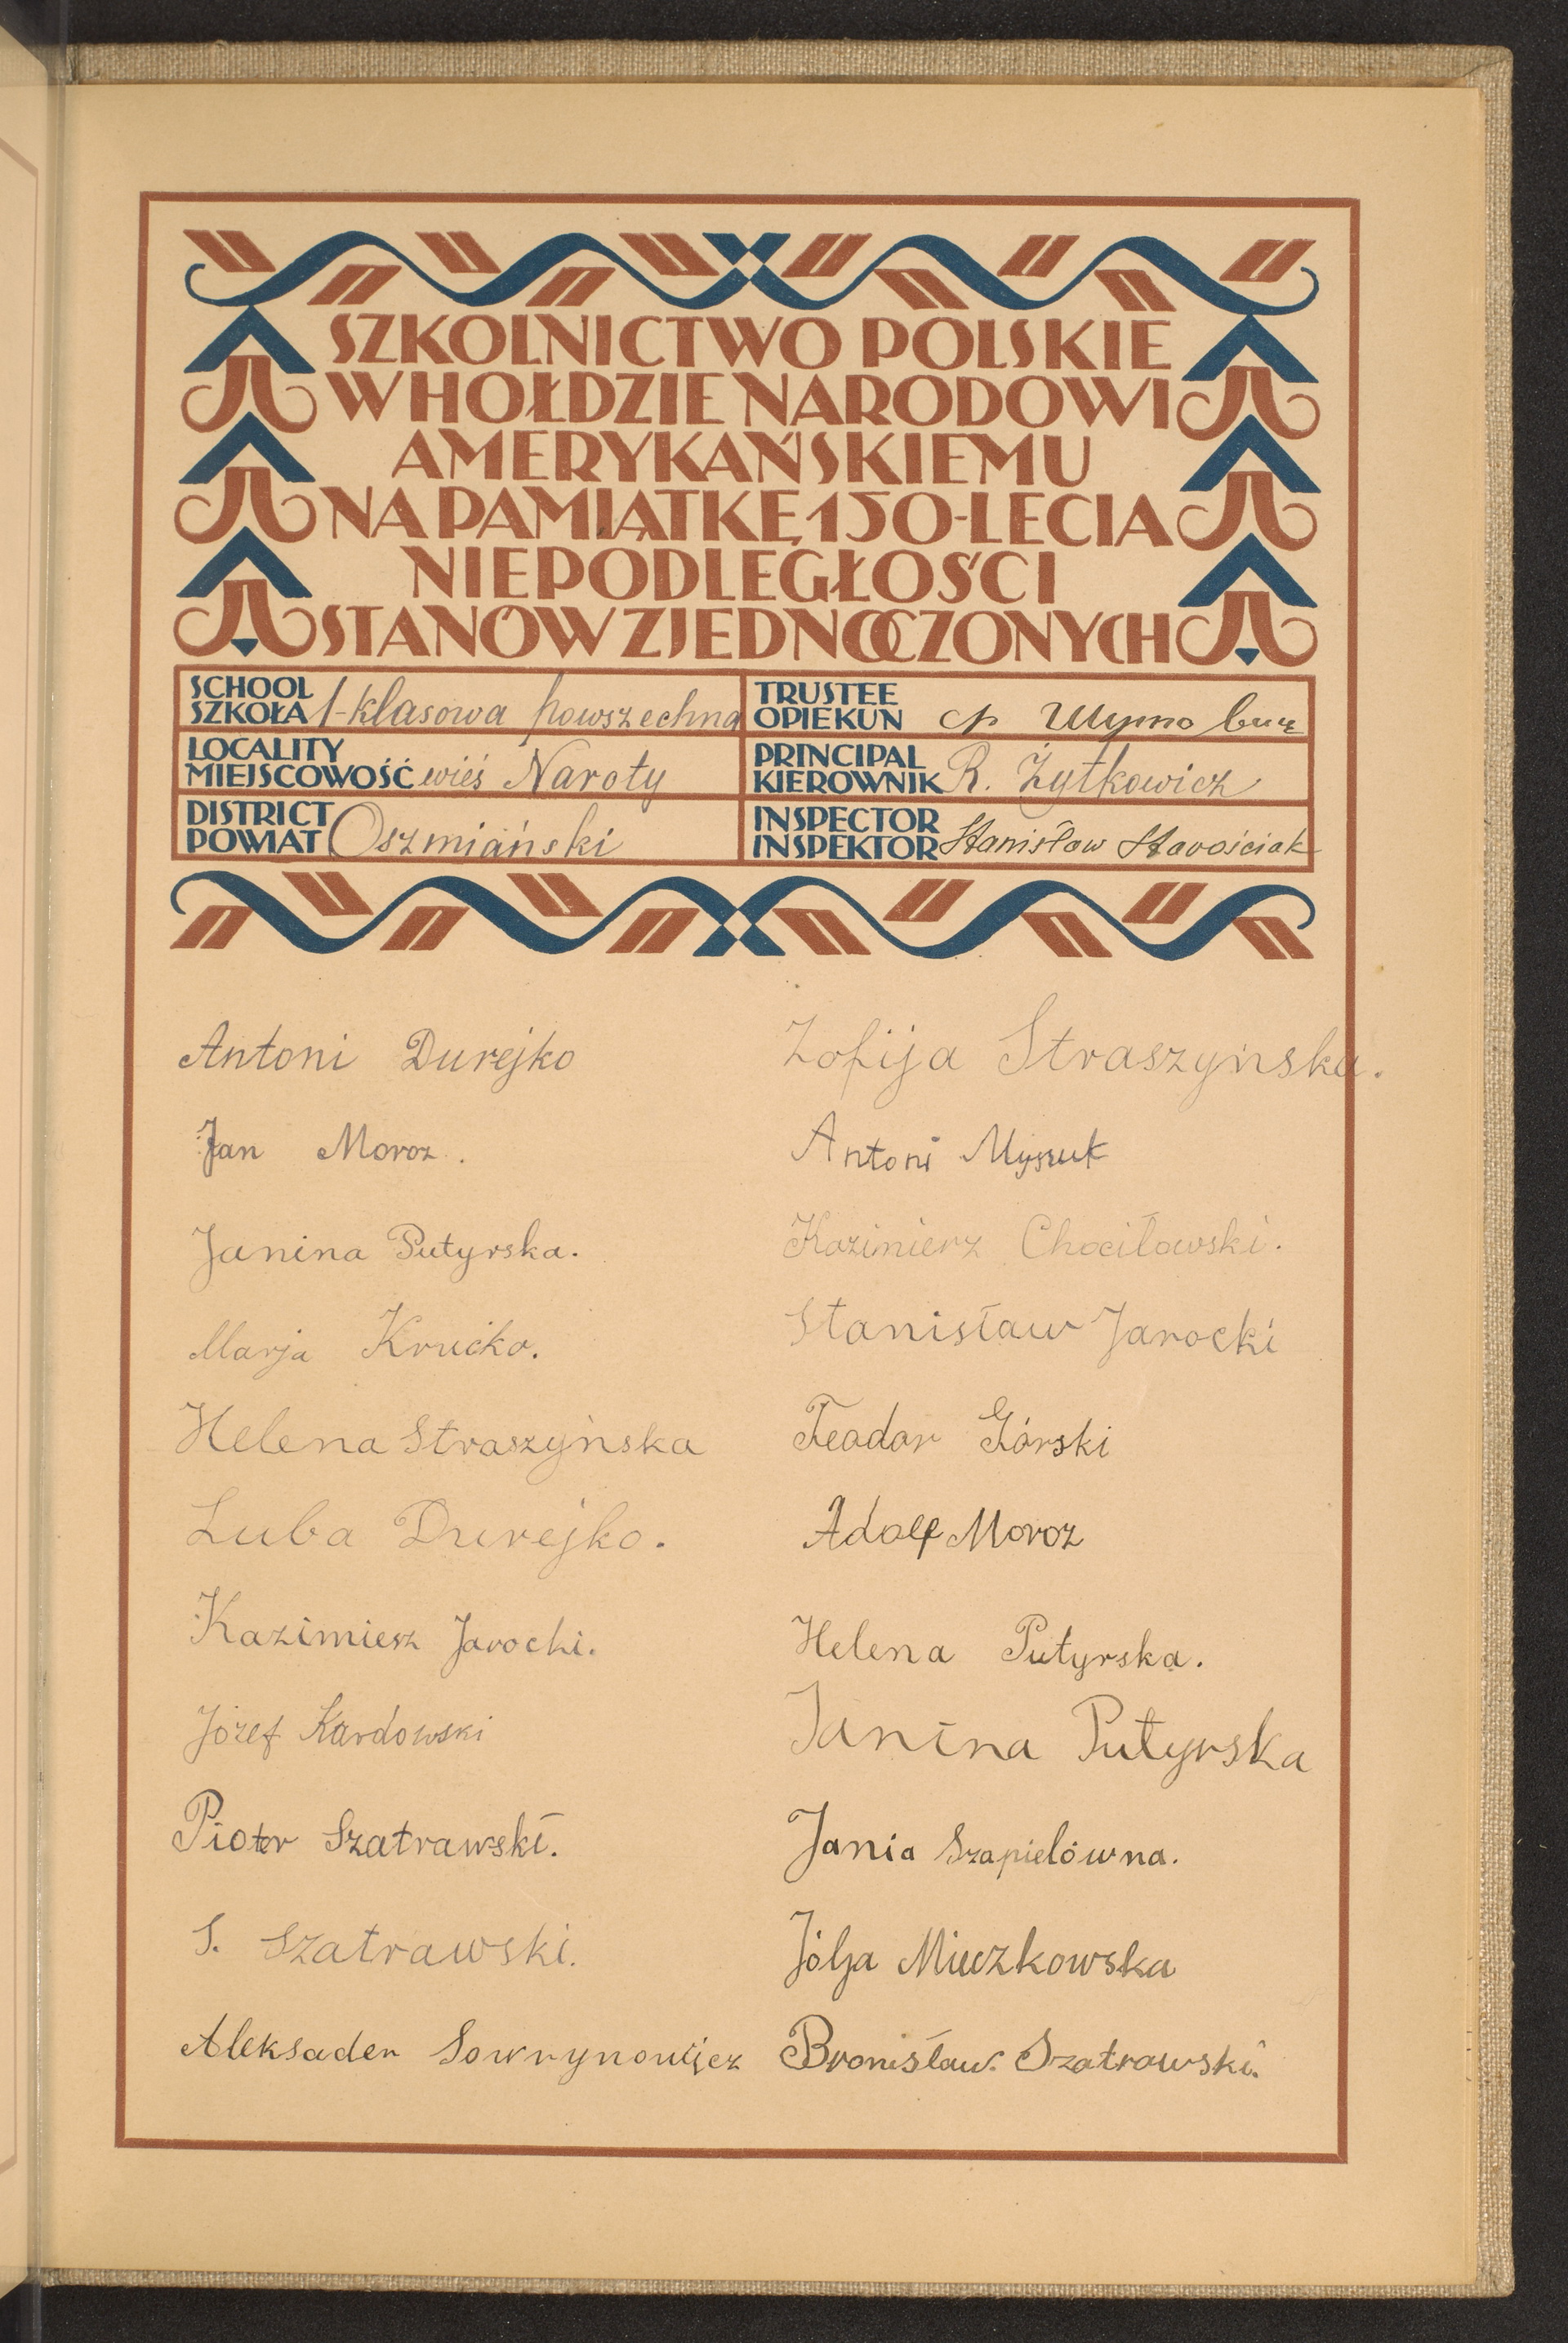 SZKOLNICTWO POLSKIE
W HOŁDZIE NARODOWI
AMERYKAŃSKIEMU
NA PAMIĄTKĘ 150-LECIA
NIEPODLEGŁOŚCI
STANÓW ZJEDNOCZONYCH
SCHOOL
SZKOŁA 1-klasowa powszechna
TRUSTEE
OPIEKUN
LOCALITY
MIEJSCOWOŚĆ wieś Naroty
PRINCIPAL
KIEROWNIK R. Żytkowicz
DISTRICT
POWIAT Oszmiański
INSPECTOR
INSPEKTOR Stanisław Starościak
Antoni Durejko
Jan Moroz.
Janina Putyrska.
Marja Krućko.
Helena Straszyńska
Luba Durejko.
Kazimiesz Jarocki.
Józef Kardowski
Piotr Szatrawski.
S. Szatrawski.
Aleksader Sowrynowijcz
Zofija Straszyńska.
Antoni Myszuk
Kazimierz Chociłowski.
Stanisław Jarocki
Feodor Górski
Adolf Moroz
Helena Putyrska.
Janina Putyrska
Jania Szapielówna.
Jólja Mieczkowska
Bronisław. Szatrawski.